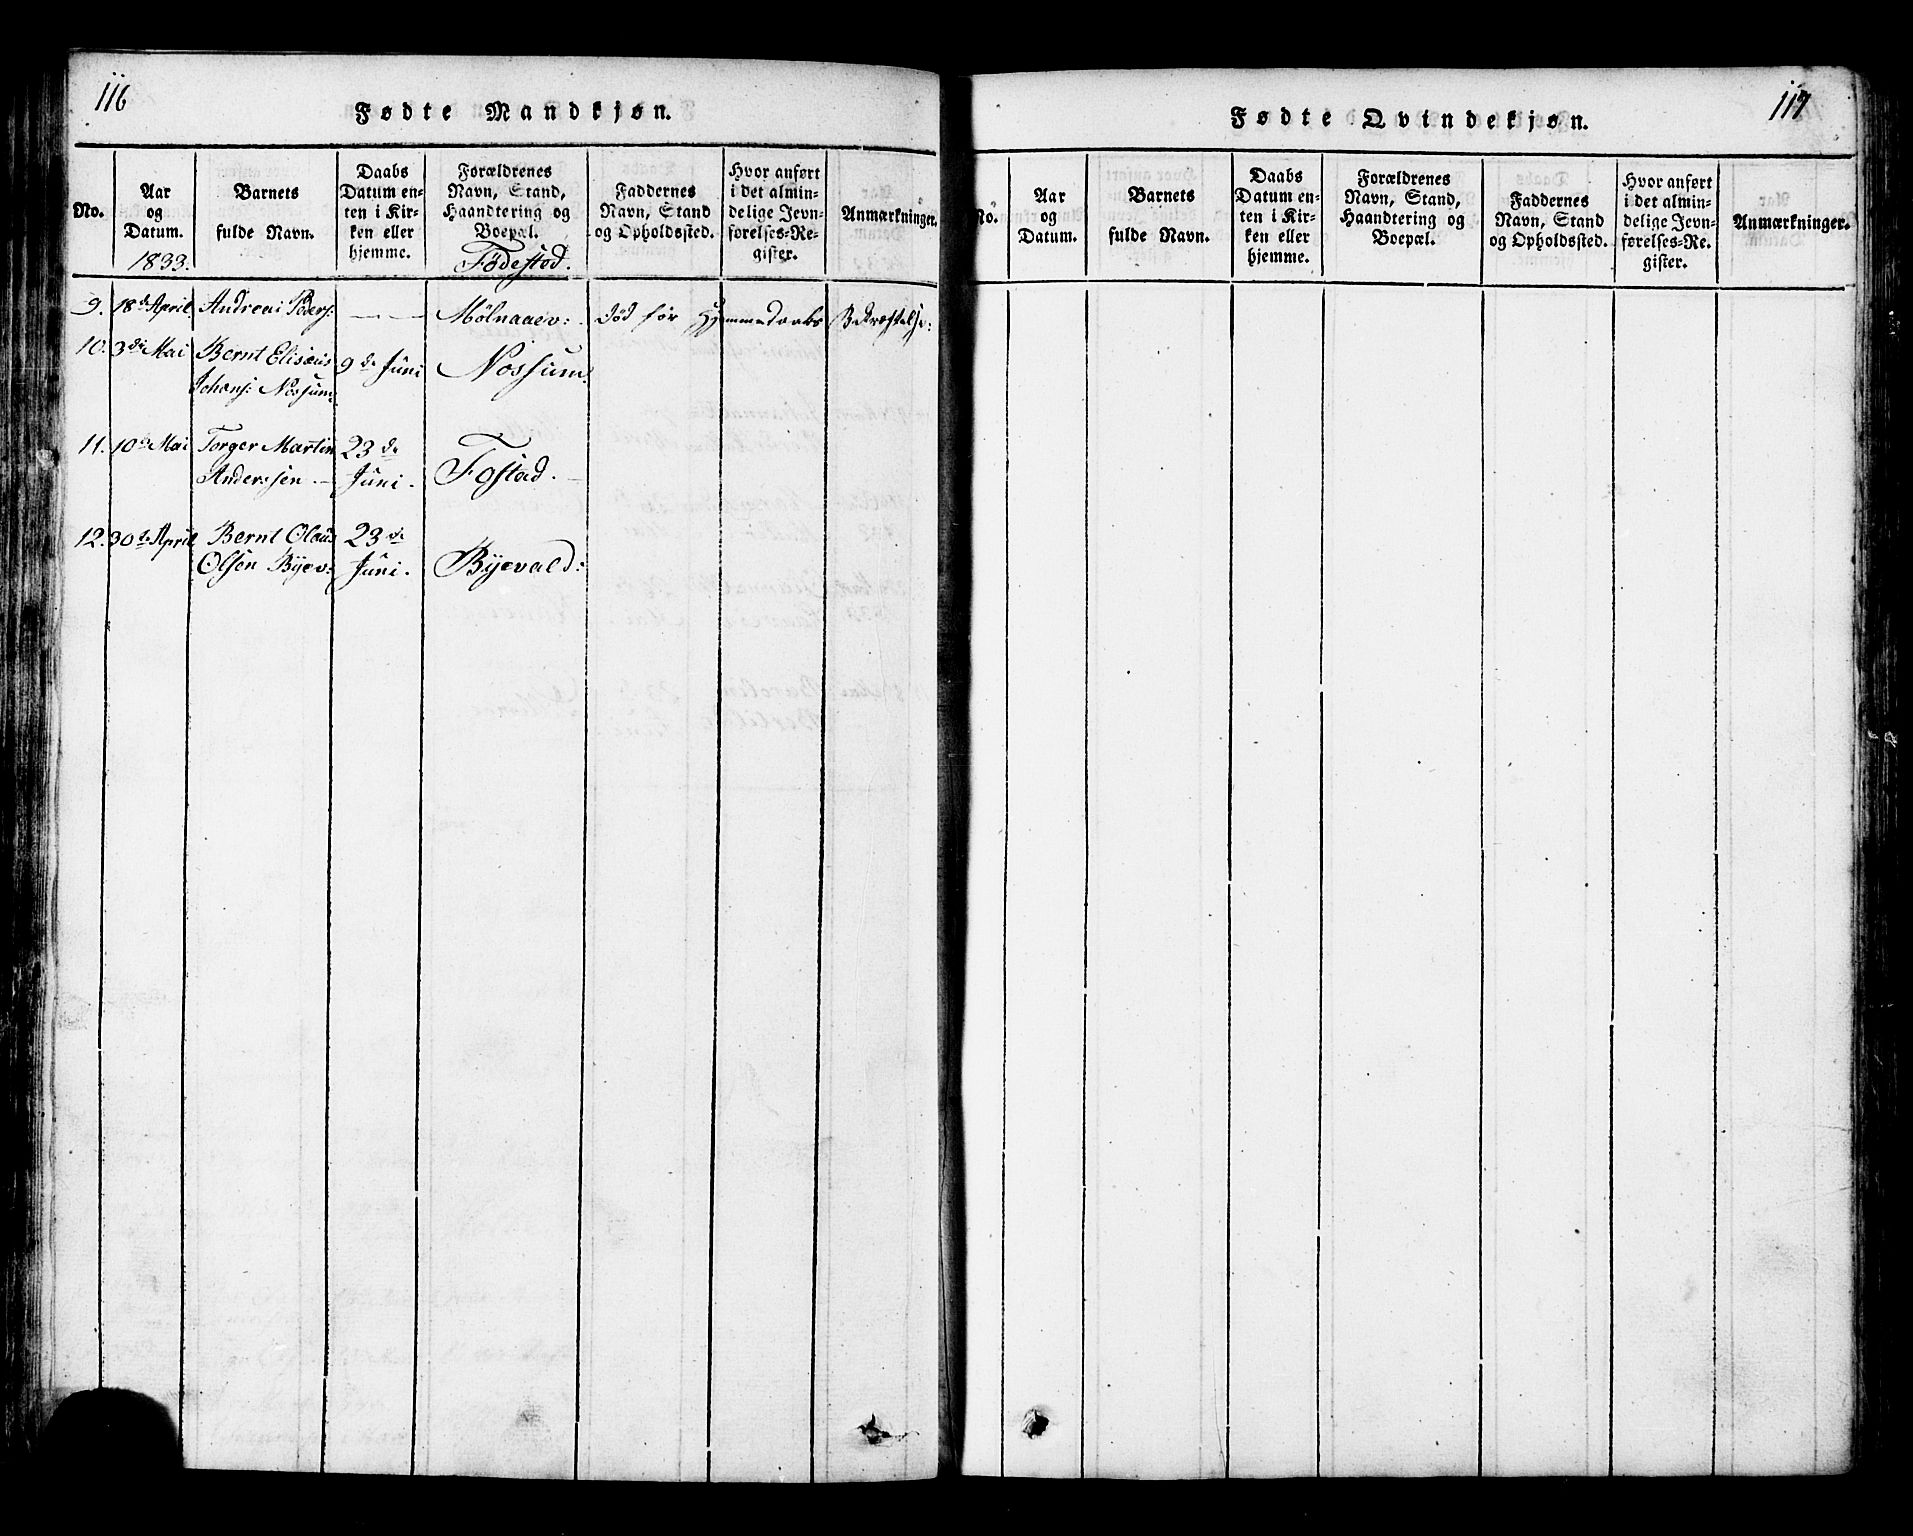 116
Fødte Mandkjøn.
No.
Aar
og
Datum.
1833.
Barnets
fulde Navn.
Daabs
Datum en-
ten i Kir-
ken eller
hjemme.
Forældrenes
Navn, Stand,
Haandtering og
Boepæl.
Födestod.
Faddernes
Navn, Stand
og Opholdssted.
Hvor anført
i det almin-
delige Jevn-
førelses-Re-
gister.
Anmærkninger.
9. 18de April Andreas Peders: — — Mölnaaev: död för Hjemmedaabs Bekræftelse:
10. 3die Mai Bernt Elisæus 9de Juni Nossum.
Johans: Nossum
11. 10de Mai Torger Martin 23de
Anderssen — Juni. Fostad. —
12. 30te April Bernt Olaus 23de
Olsen Byev: Juni. Byevald:
117
Fødte Qvindekjøn.
No.
Aar
og
Datum.
Barnets
fulde Navn.
Daabs
Datum en-
ten i Kir-
ken eller
hjemme.
Forældrenes
Navn, Stand,
Haandtering og
Boepæl.
Faddernes
Navn, Stand
og Opholdssted.
Hvor anført
i det almin-
delige Jevn-
førelses-Re-
gister.
Anmærkninger.